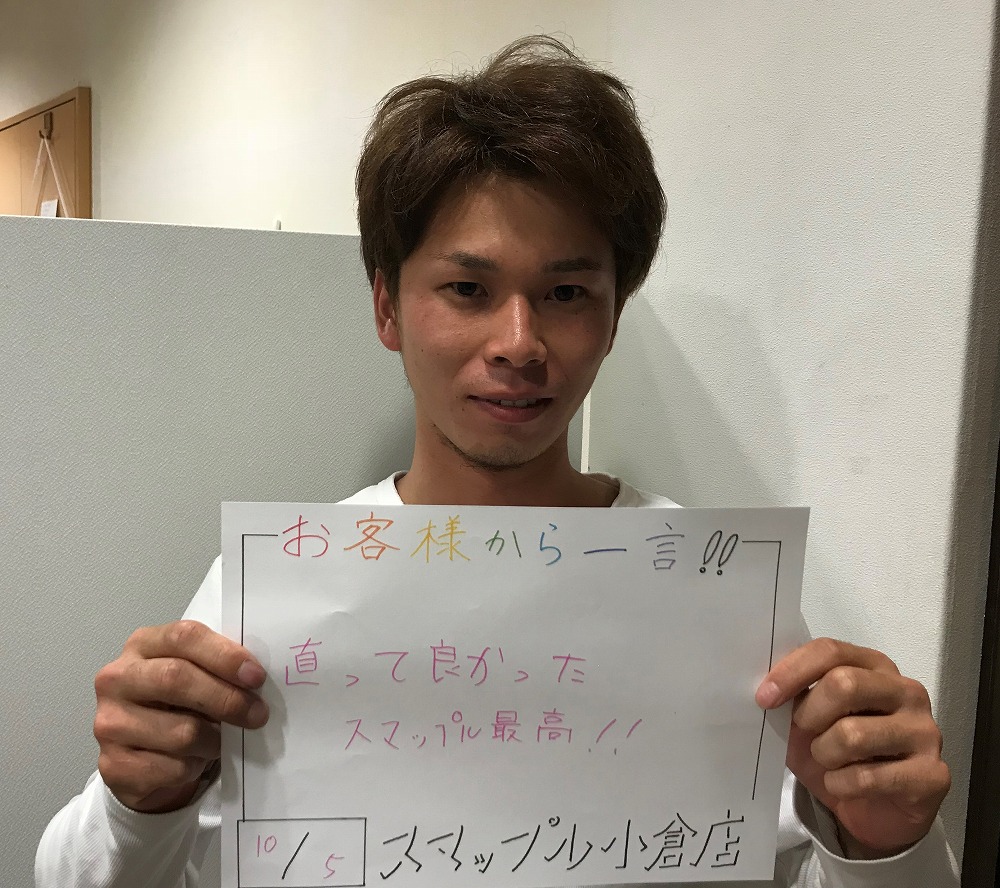 お客様から一言!!
直って良かった
スマップル最高!!
10/5 スマップル小倉店